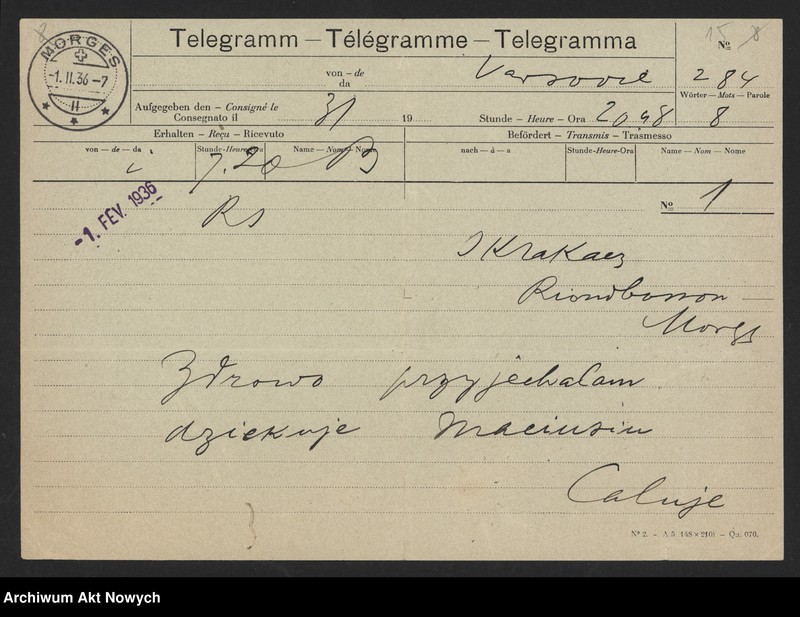 Telegramm – Télégramme – Telegramma
№ 15
MORGES
-1. II. 36 -7
von – de
da
Varsovie
284
Wörter – Mots – Parole
8
Aufgegeben den – Consigné le
Consegnato il
31
19
Stunde – Heure – Ora
2048
Erhalten – Reçu – Ricevuto
Befördert – Transmis – Trasmesso
von – de – da
Stunde-Heure-Ora
Name – Nom – Nome
nach – à – a
Stunde-Heure-Ora
Name – Nom – Nome
7.20
-1. FEV. 1936
№ 1
Rs
Riondbosson
Morges
Zdrowo przyjechalam
dziekuje Maciusiu
Caluje
Nº 2. – A 5 (148×210) – Qu. 070.
Archiwum Akt Nowych